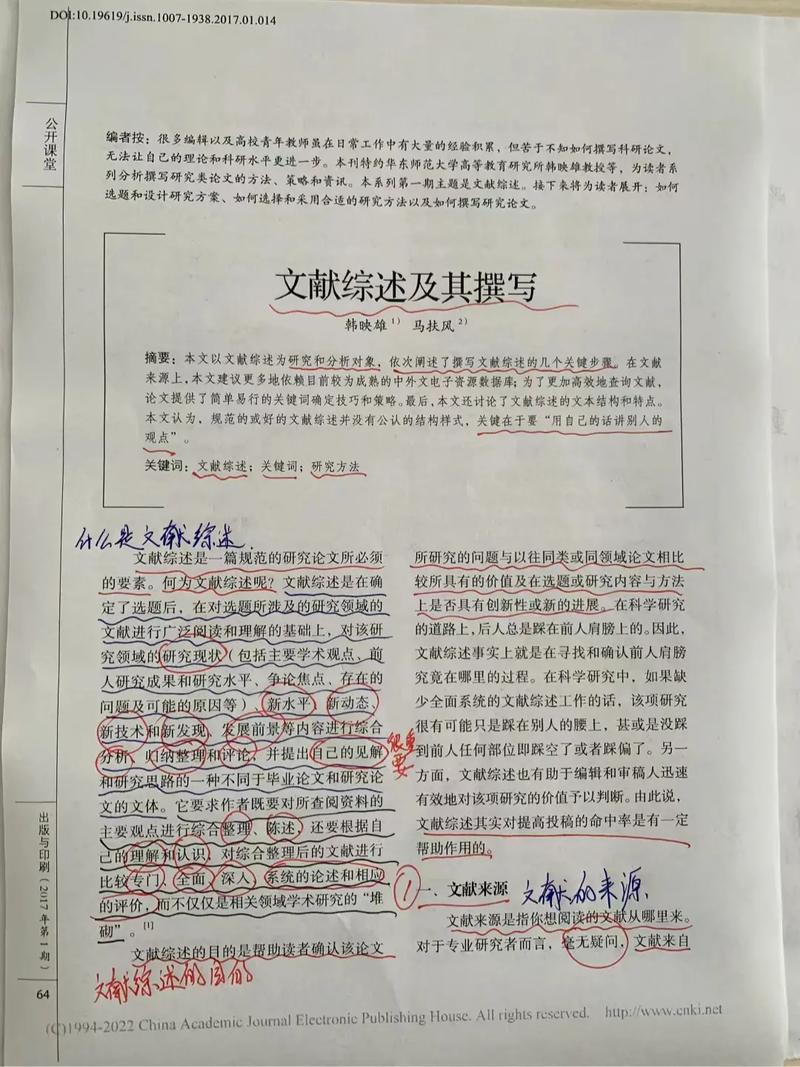 DOI:10.19619/j.issn.1007-1938.2017.01.014
公开课堂
编者按：很多编辑以及高校青年教师虽在日常工作中有大量的经验积累，但苦于不知如何撰写科研论文，
无法让自己的理论和科研水平更进一步。本刊特约华东师范大学高等教育研究所韩映雄教授等，为读者系
列分析撰写研究类论文的方法、策略和资讯。本系列第一期主题是文献综述。接下来将为读者展开：如何
选题和设计研究方案、如何选择和采用合适的研究方法以及如何撰写研究论文。
文献综述及其撰写
韩映雄1) 马扶风2)
摘要：本文以文献综述为研究和分析对象，依次阐述了撰写文献综述的几个关键步骤。在文献
来源上，本文建议更多地依赖目前较为成熟的中外文电子资源数据库；为了更加高效地查询文献，
论文提供了简单易行的关键词确定技巧和策略。最后，本文还讨论了文献综述的文本结构和特点。
本文认为，规范的或好的文献综述并没有公认的结构样式，关键在于要“用自己的话讲别人的
观点”。
关键词：文献综述；关键词；研究方法
什么是文献综述
文献综述是一篇规范的研究论文所必须
的要素。何为文献综述呢？文献综述是在确
定了选题后，在对选题所涉及的研究领域的
文献进行广泛阅读和理解的基础上，对该研
究领域的研究现状（包括主要学术观点、前
人研究成果和研究水平、争论焦点、存在的
问题及可能的原因等）、新水平、新动态、
新技术和新发现、发展前景等内容进行综合
分析、归纳整理和评论，并提出自己的见解
很重要
和研究思路的一种不同于毕业论文和研究论
文的文体。它要求作者既要对所查阅资料的
主要观点进行综合整理、陈述，还要根据自
己的理解和认识，对综合整理后的文献进行
比较专门、全面、深入、系统的论述和相应
的评价，而不仅仅是相关领域学术研究的“堆
砌”。[1]
文献综述的目的是帮助读者确认该论文
文献综述的目的
所研究的问题与以往同类或同领域论文相比
较所具有的价值及在选题或研究内容与方法
上是否具有创新性或新的进展。在科学研究
的道路上，后人总是踩在前人肩膀上的。因此，
文献综述事实上就是在寻找和确认前人肩膀
究竟在哪里的过程。在科学研究中，如果缺
少全面系统的文献综述工作的话，该项研究
很有可能只是踩在别人的腰上，甚或是没踩
到前人任何部位即踩空了或者踩偏了。另一
方面，文献综述也有助于编辑和审稿人迅速
有效地对该项研究的价值予以判断。由此说，
文献综述其实对提高投稿的命中率是有一定
帮助作用的。
1
一、文献来源
文献的来源
文献来源是指你想阅读的文献从哪里来。
对于专业研究者而言，毫无疑问，文献来自
出版与印刷（2017年第1期）
64
(C)1994-2022 China Academic Journal Electronic Publishing House. All rights reserved. http://www.cnki.net